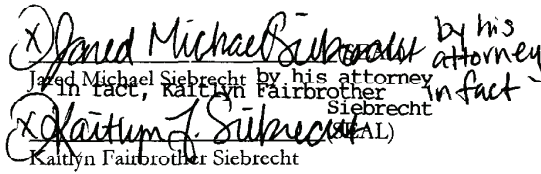 (X) Jared Michael Siebrecht by his attorney in fact
Jared Michael Siebrecht by his attorney
in fact, Kaitlyn Fairbrother
Siebrecht
(X) Kaitlyn F. Siebrecht (SEAL)
Kaitlyn Fairbrother Siebrecht